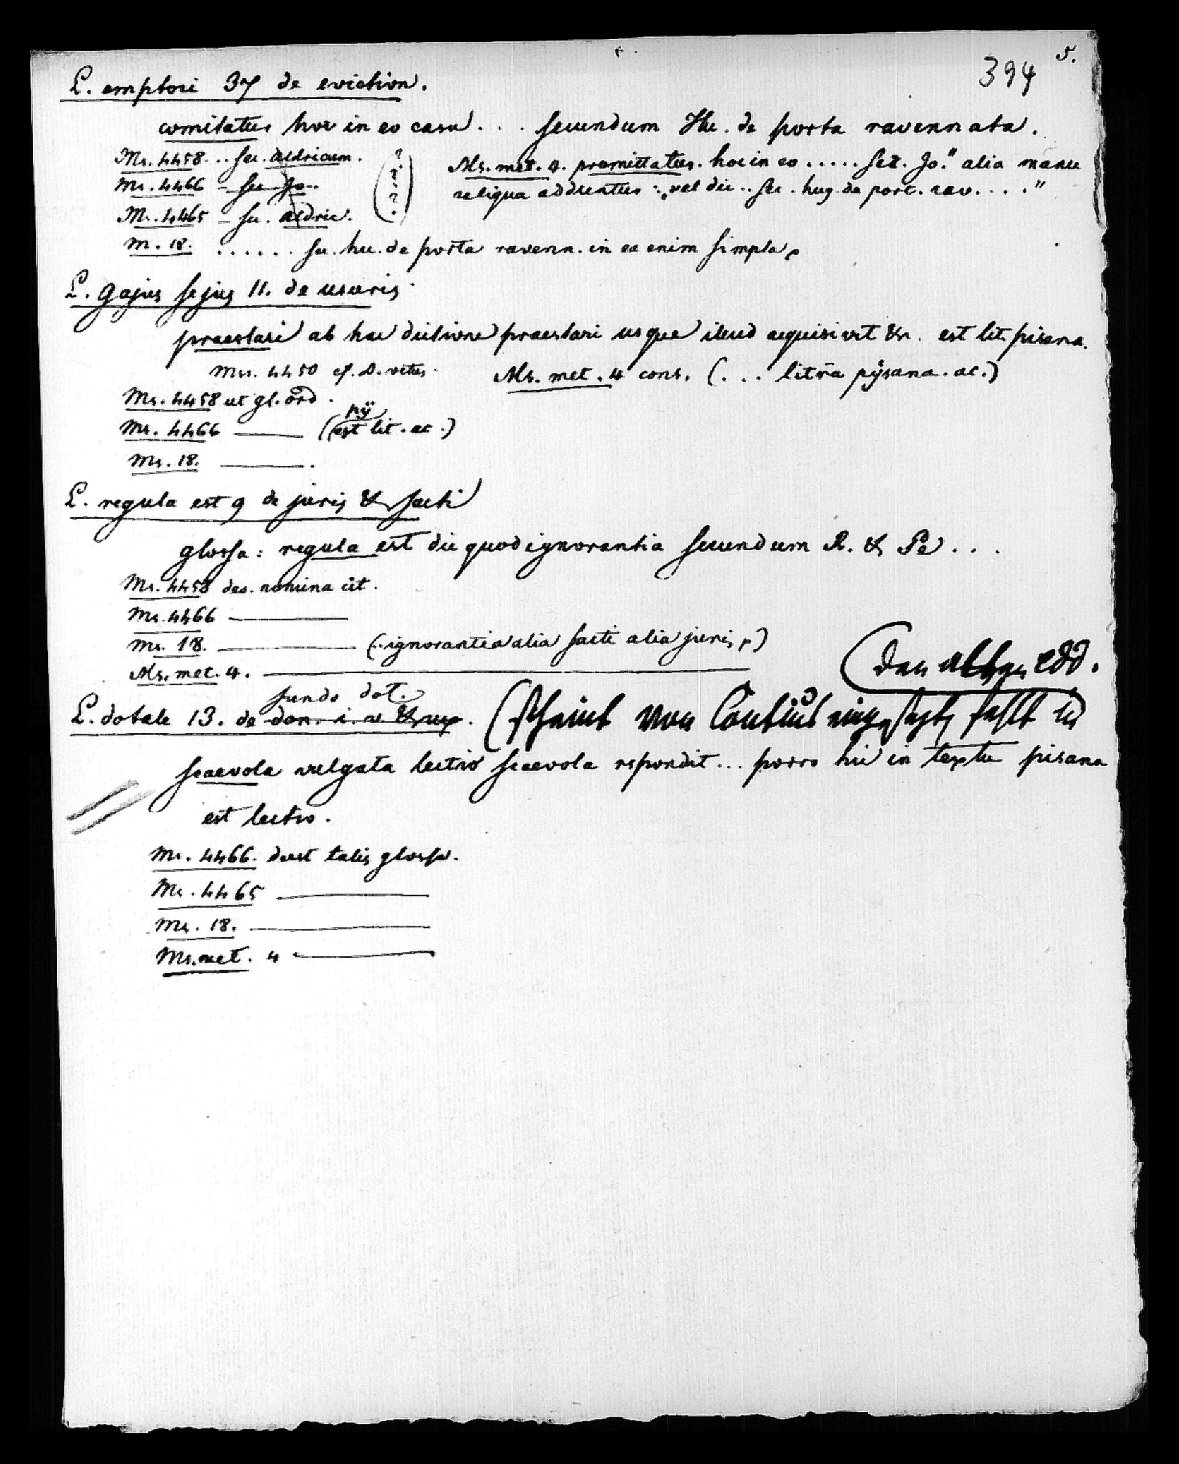 5.
394
L. emptori 37 de eviction.
comitatus hoc in eo casu . . . secundum Hu. de porta ravennata.
Ms. 4458 .. sec. aldricum. (?
Ms. 4466 – sec. Jo. ?
Ms. 4465 – sec. aldric. ?)
Ms. met. 4. promittatus. hoc in eo ..... sec. Jo." alia manu
reliqua adduntur : „vel dic .. sec. hug. de port. rav. . . ."
M. 18. . . . . . . sec. hu. de porta ravenn. in ea enim simpla
L. gajus sejus 11. de usuris.
praestari ab hac dictione praestari usque illud acquisivit &c. est lit. pisana.
Mss. 4450 cf. D. vetus.
Ms. met. 4 cons. (. . . litra pysana. ac.)
Ms. 4458 ut gl. ord.
pÿ
Ms. 4466 ——— (est lit. ac.)
Ms. 18. ———.
L. regula est 9 de juris & facti
glossa: regula est dic quod ignorantia secundum R. & Pe . . .
Ms. 4458 des. nomina
Ms. 4466 ———
Ms. 18. ——— (. ignorantia alia facti alia juris)
Ms. met. 4. ———
(den edd.
fundo dot.
L. dotale 13. de don. i. v. & ux. (scheint von Contius fehlt in
scaevola vulgata lectio scaevola respondit ... porro hic in textu pisana
est lectio.
Ms. 4466. deest talis glossa.
Ms. 4465 ———
Ms. 18. ———
Ms. met. 4 ———